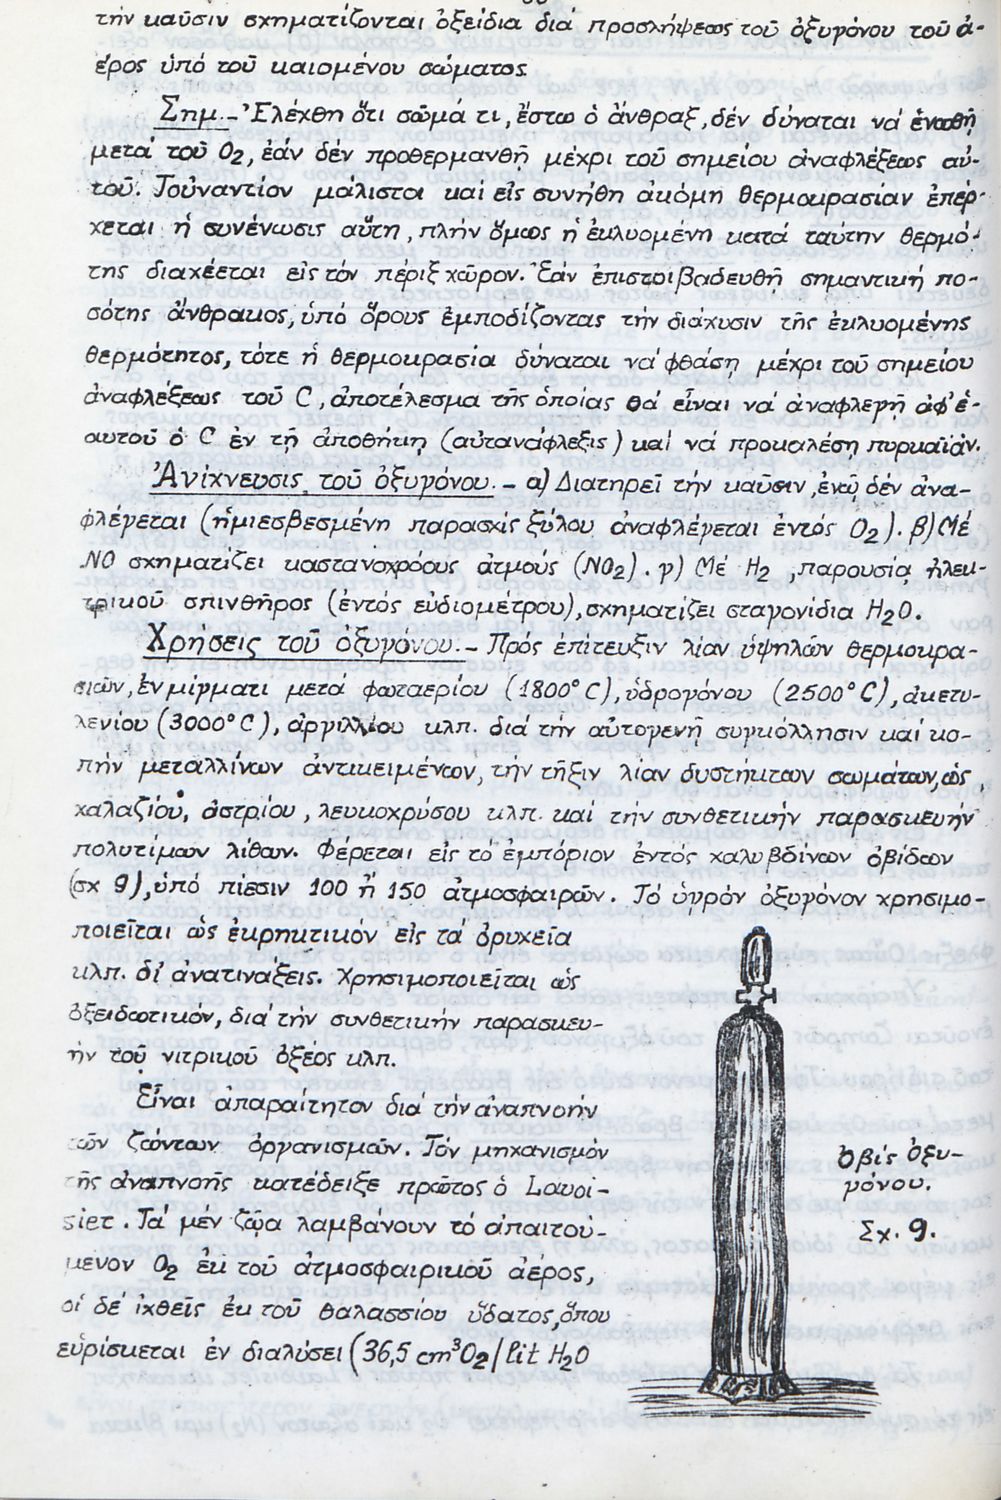 τὴν καῦσιν σχηματίζονται ὀξείδια διά προσλήψεως τοῦ ὀξυγόνου τοῦ ἀ-
έρος ὑπό τοῦ καιομένου σώματος
Σημ.- Ἐλέχθη ὅτι σῶμά τι, ἔστω ὁ ἄνθραξ, δέν δύναται νά ἑνωθῇ
μετά τοῦ O₂, ἐάν δέν προθερμανθῇ μέχρι τοῦ σημείου ἀναφλέξεως αὐ-
τοῦ. Τοὐναντίον μάλιστα καί εἰς συνήθη ἀκόμη θερμοκρασίαν ἐπέρ-
χεται ἡ συνένωσις αὕτη, πλήν ὅμως ἡ ἐκλυομένη κατά ταύτην θερμό-
της διαχέεται εἰς τόν πέριξ χῶρον. Ἐάν ἐπιστοιβαδευθῇ σημαντική πο-
σότης ἄνθρακος, ὑπό ὅρους ἐμποδίζοντας τήν διάχυσιν τῆς ἐκλυομένης
θερμότητος, τότε ἡ θερμοκρασία δύναται νά φθάσῃ μέχρι τοῦ σημείου
ἀναφλέξεως τοῦ C, ἀποτέλεσμα τῆς ὁποίας θά εἶναι νά ἀναφλεγῇ ἀφ' ἑ-
αυτοῦ ὁ C ἐν τῇ ἀποθήκῃ (αὐτανάφλεξις) καί νά προκαλέσῃ πυρκαϊάν.
Ἀνίχνευσις τοῦ ὀξυγόνου.- α) Διατηρεῖ τήν καῦσιν, ἐνῷ δέν ἀνα-
φλέγεται (ἡμιεσβεσμένη παρασχίς ξύλου ἀναφλέγεται ἐντός O₂). β) Μέ
NO σχηματίζει καστανοχρόους ἀτμούς (NO₂). γ) Μέ H₂, παρουσίᾳ ἠλεκ-
τρικοῦ σπινθῆρος (ἐντός εὐδιομέτρου), σχηματίζει σταγονίδια H₂O.
Χρήσεις τοῦ ὀξυγόνου.- Πρός ἐπίτευξιν λίαν ὑψηλῶν θερμοκρα-
σιῶν, ἐν μίγματι μετά φωταερίου (1800°C), ὑδρογόνου (2500°C), ἀκετυ-
λενίου (3000°C), ἀργιλλίου κλπ. διά τήν αὐτογενῆ συγκόλλησιν καί κο-
πήν μεταλλίνων ἀντικειμένων, τήν τῆξιν λίαν δυστήκτων σωμάτων, ὡς
χαλαζίου, ἀστρίου, λευκοχρύσου κλπ. καί τήν συνθετικήν παρασκευήν
πολυτίμων λίθων. Φέρεται εἰς τό ἐμπόριον ἐντός χαλυβδίνων ὀβίδων
(σχ 9), ὑπό πίεσιν 100 ἤ 150 ἀτμοσφαιρῶν. Τό ὑγρόν ὀξυγόνον χρησιμο-
ποιεῖται ὡς ἐκρηκτικόν εἰς τά ὀρυχεῖα
κλπ. δι' ἀνατινάξεις. Χρησιμοποιεῖται ὡς
ὀξειδωτικόν, διά τήν συνθετικήν παρασκευ-
ήν τοῦ νιτρικοῦ ὀξέος κλπ.
Εἶναι ἀπαραίτητον διά τήν ἀναπνοήν
τῶν ζώντων ὀργανισμῶν. Τόν μηχανισμόν
τῆς ἀναπνοῆς κατέδειξε πρῶτος ὁ Lavoi-
siet. Τά μέν ζῷα λαμβάνουν τό ἀπαιτού-
μενον O₂ ἐκ τοῦ ἀτμοσφαιρικοῦ ἀέρος,
οἱ δέ ἰχθεῖς ἐκ τοῦ θαλασσίου ὕδατος, ὅπου
εὑρίσκεται ἐν διαλύσει (36,5 cm³O₂/lit H₂O
Ὀβίς ὀξυ-
γόνου.
Σχ. 9.